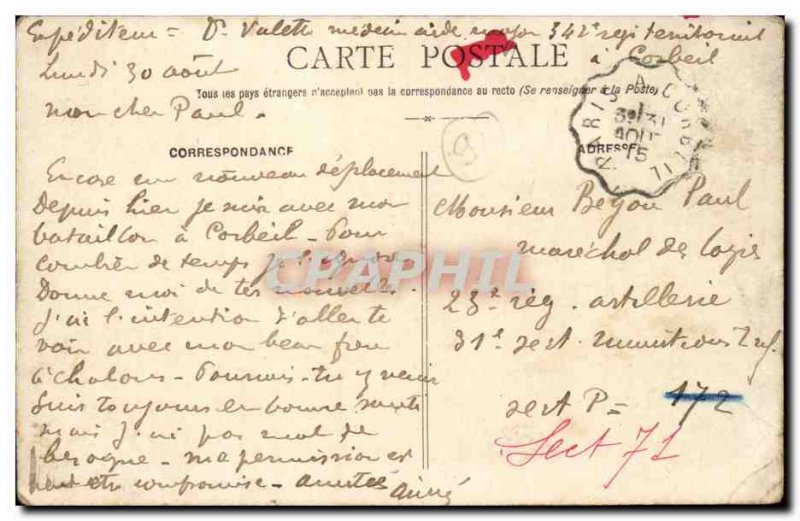 Expéditeur = Dr Valette médecin aide major 342e regi territorial
CARTE POSTALE
à Corbeil
Lundi 30 août
Tous les pays étrangers n'acceptent pas la correspondance au recto (Se renseigner à la Poste)
mon cher Paul.
PARIS A CORBEIL
31
AOUT
15
9
CORRESPONDANCE
ADRESSE
Encore un nouveau déplacement
Depuis hier je suis avec mon
bataillon à Corbeil - Pour
combien de temps je l'ignore
Donne moi de tes nouvelles.
J'ai l'intention d'aller te
voir avec mon beau frère
à Chalons - Pourrais-tu y venir
Suis toujours en bonne santé
mais j'ai pas mal de
besogne - ma permission est
peut être compromise - amitiés
Aimé
Monsieur Begou Paul
maréchal des logis
23e rég. artillerie
31e sect. munitions
sect P = 172
Sect 71
CPAPHIL